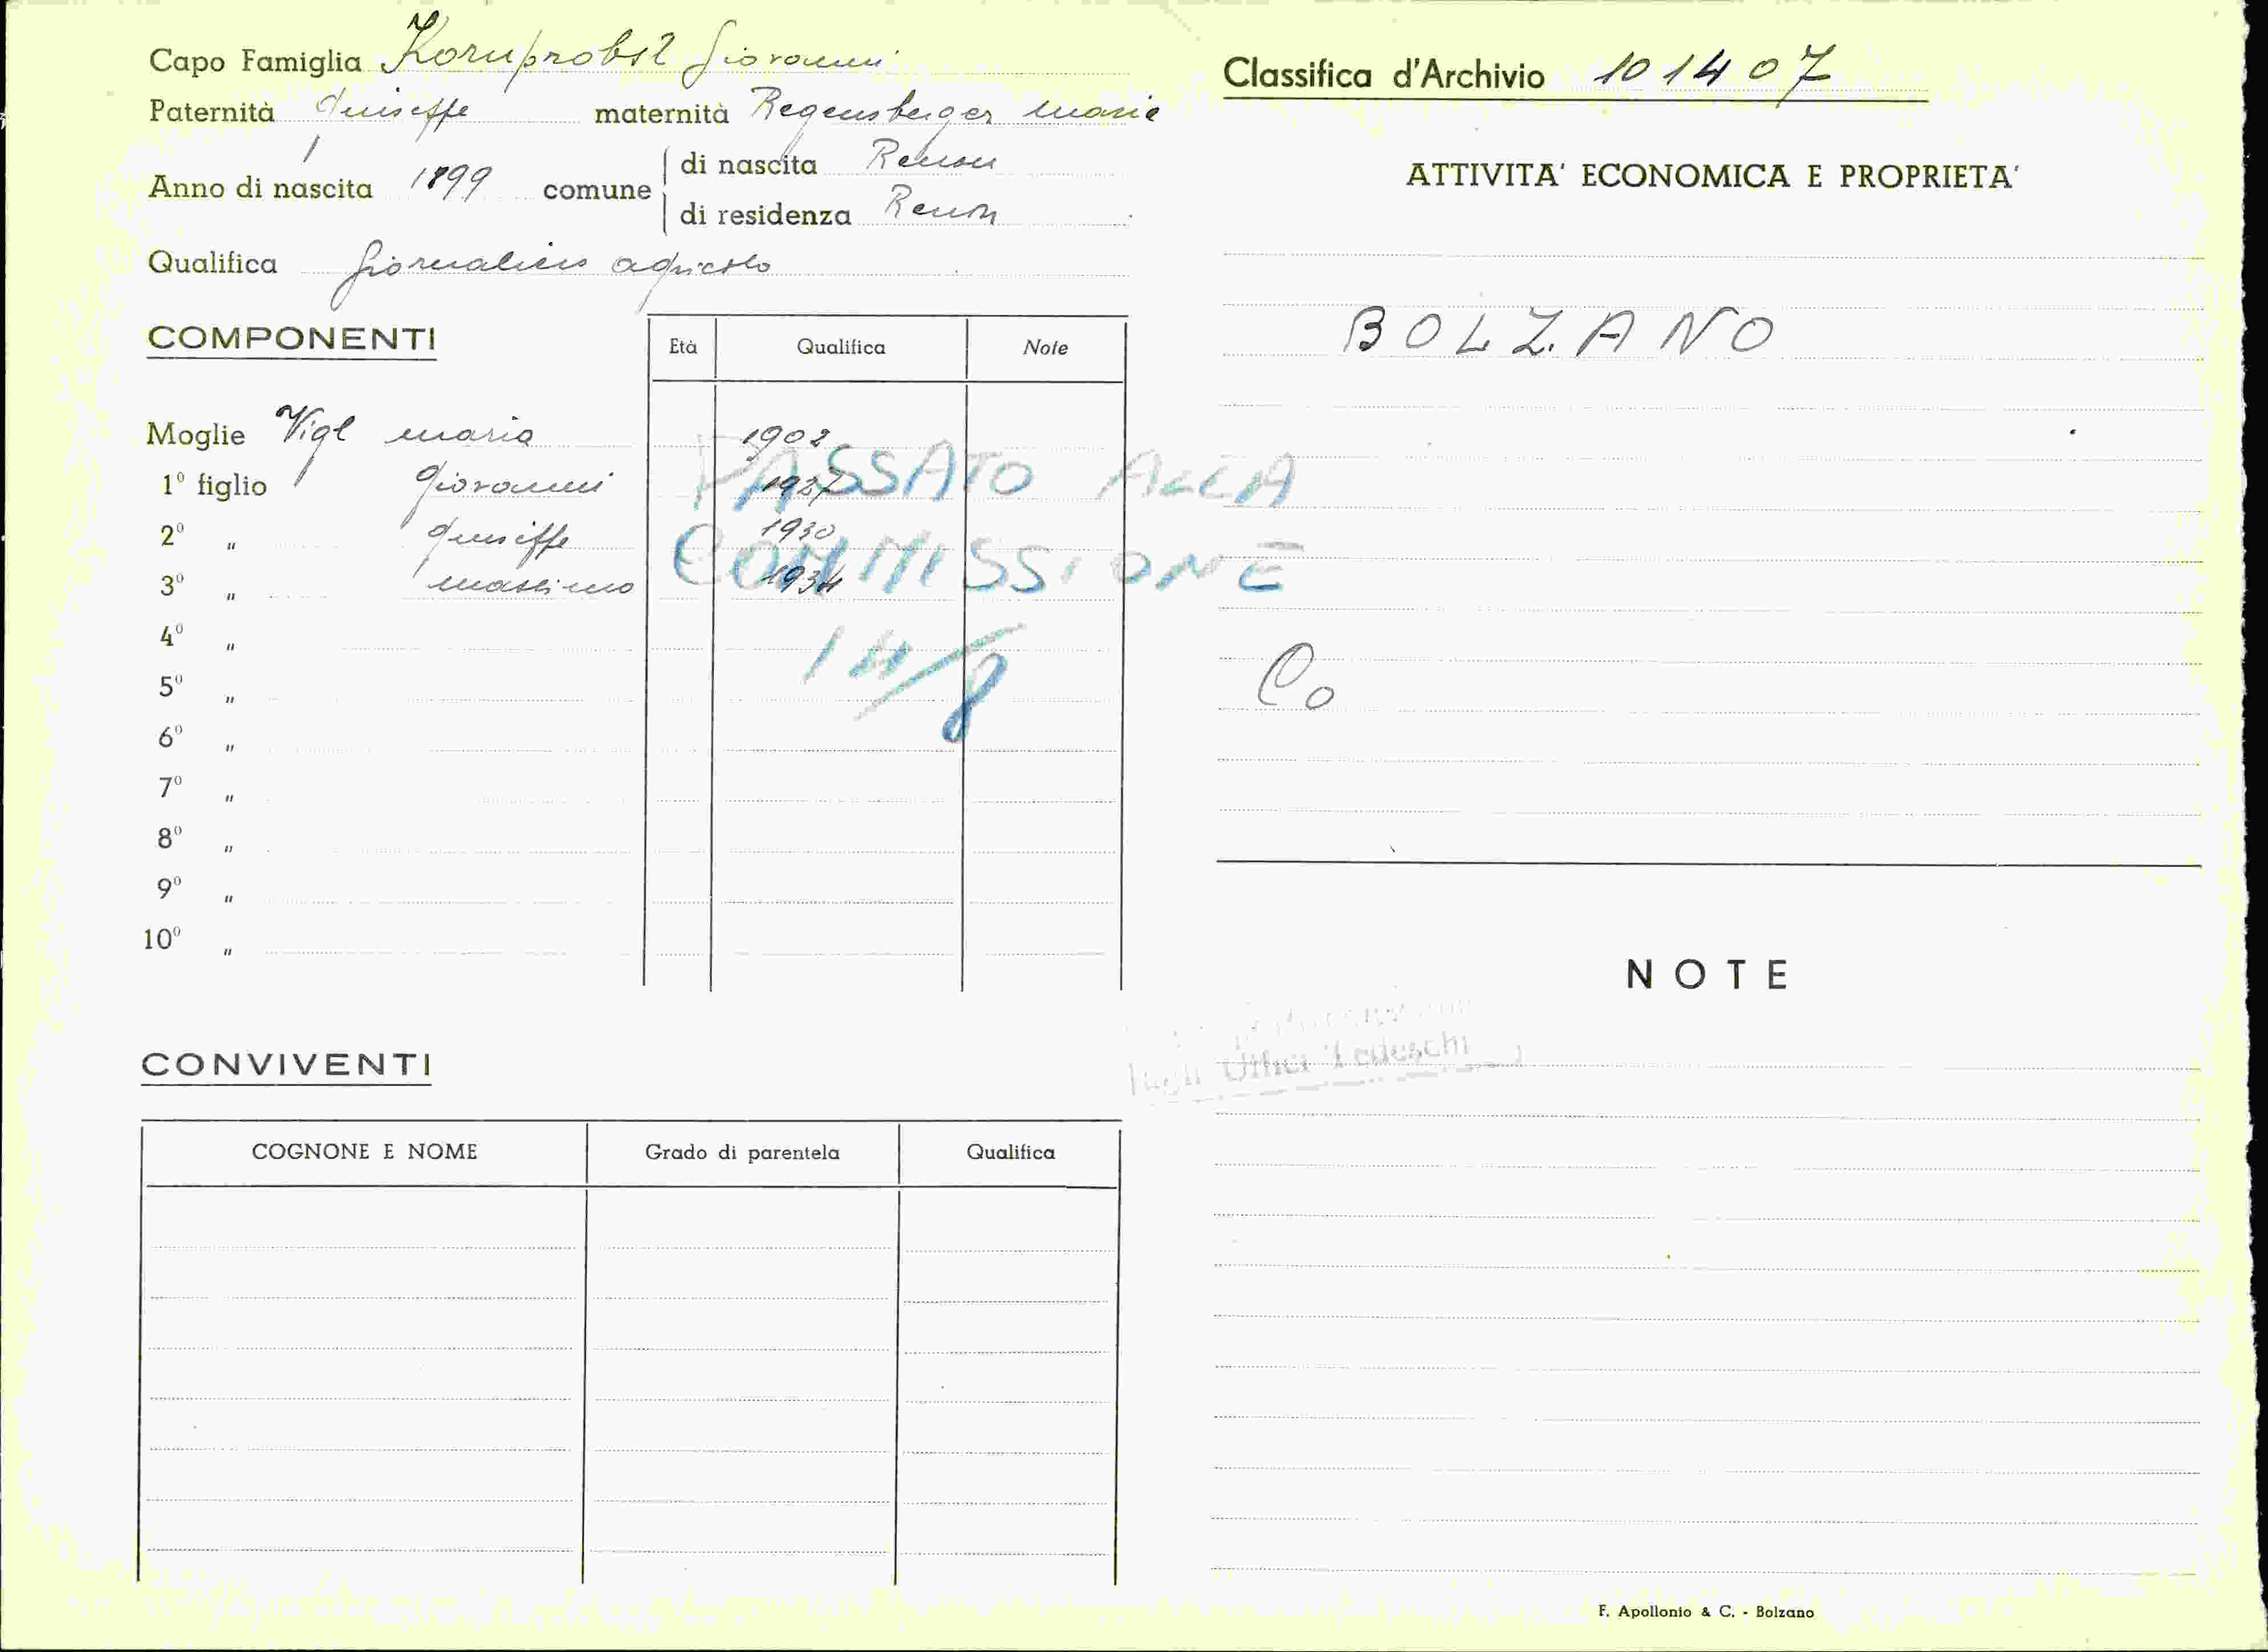 Capo Famiglia Kornprobst Giovanni
Paternità Giuseppe maternità Regensberger Maria
Anno di nascita 1899 comune di nascita Renon
di residenza Renon
Qualifica giornaliero agricolo
COMPONENTI Età Qualifica Note
Moglie Vigl Maria 1902
1º figlio Giovanni 1927
2º " Giuseppe 1930
3º " Massimo 1934
PASSATO ALLA
COMMISSIONE
14/8
4º "
5º "
6º "
7º "
8º "
9º "
10º "
CONVIVENTI
COGNONE E NOME Grado di parentela Qualifica
Classifica d'Archivio 101407
ATTIVITA' ECONOMICA E PROPRIETA'
BOLZANO
Co
NOTE
Uffici Tedeschi
F. Apollonio & C. - Bolzano